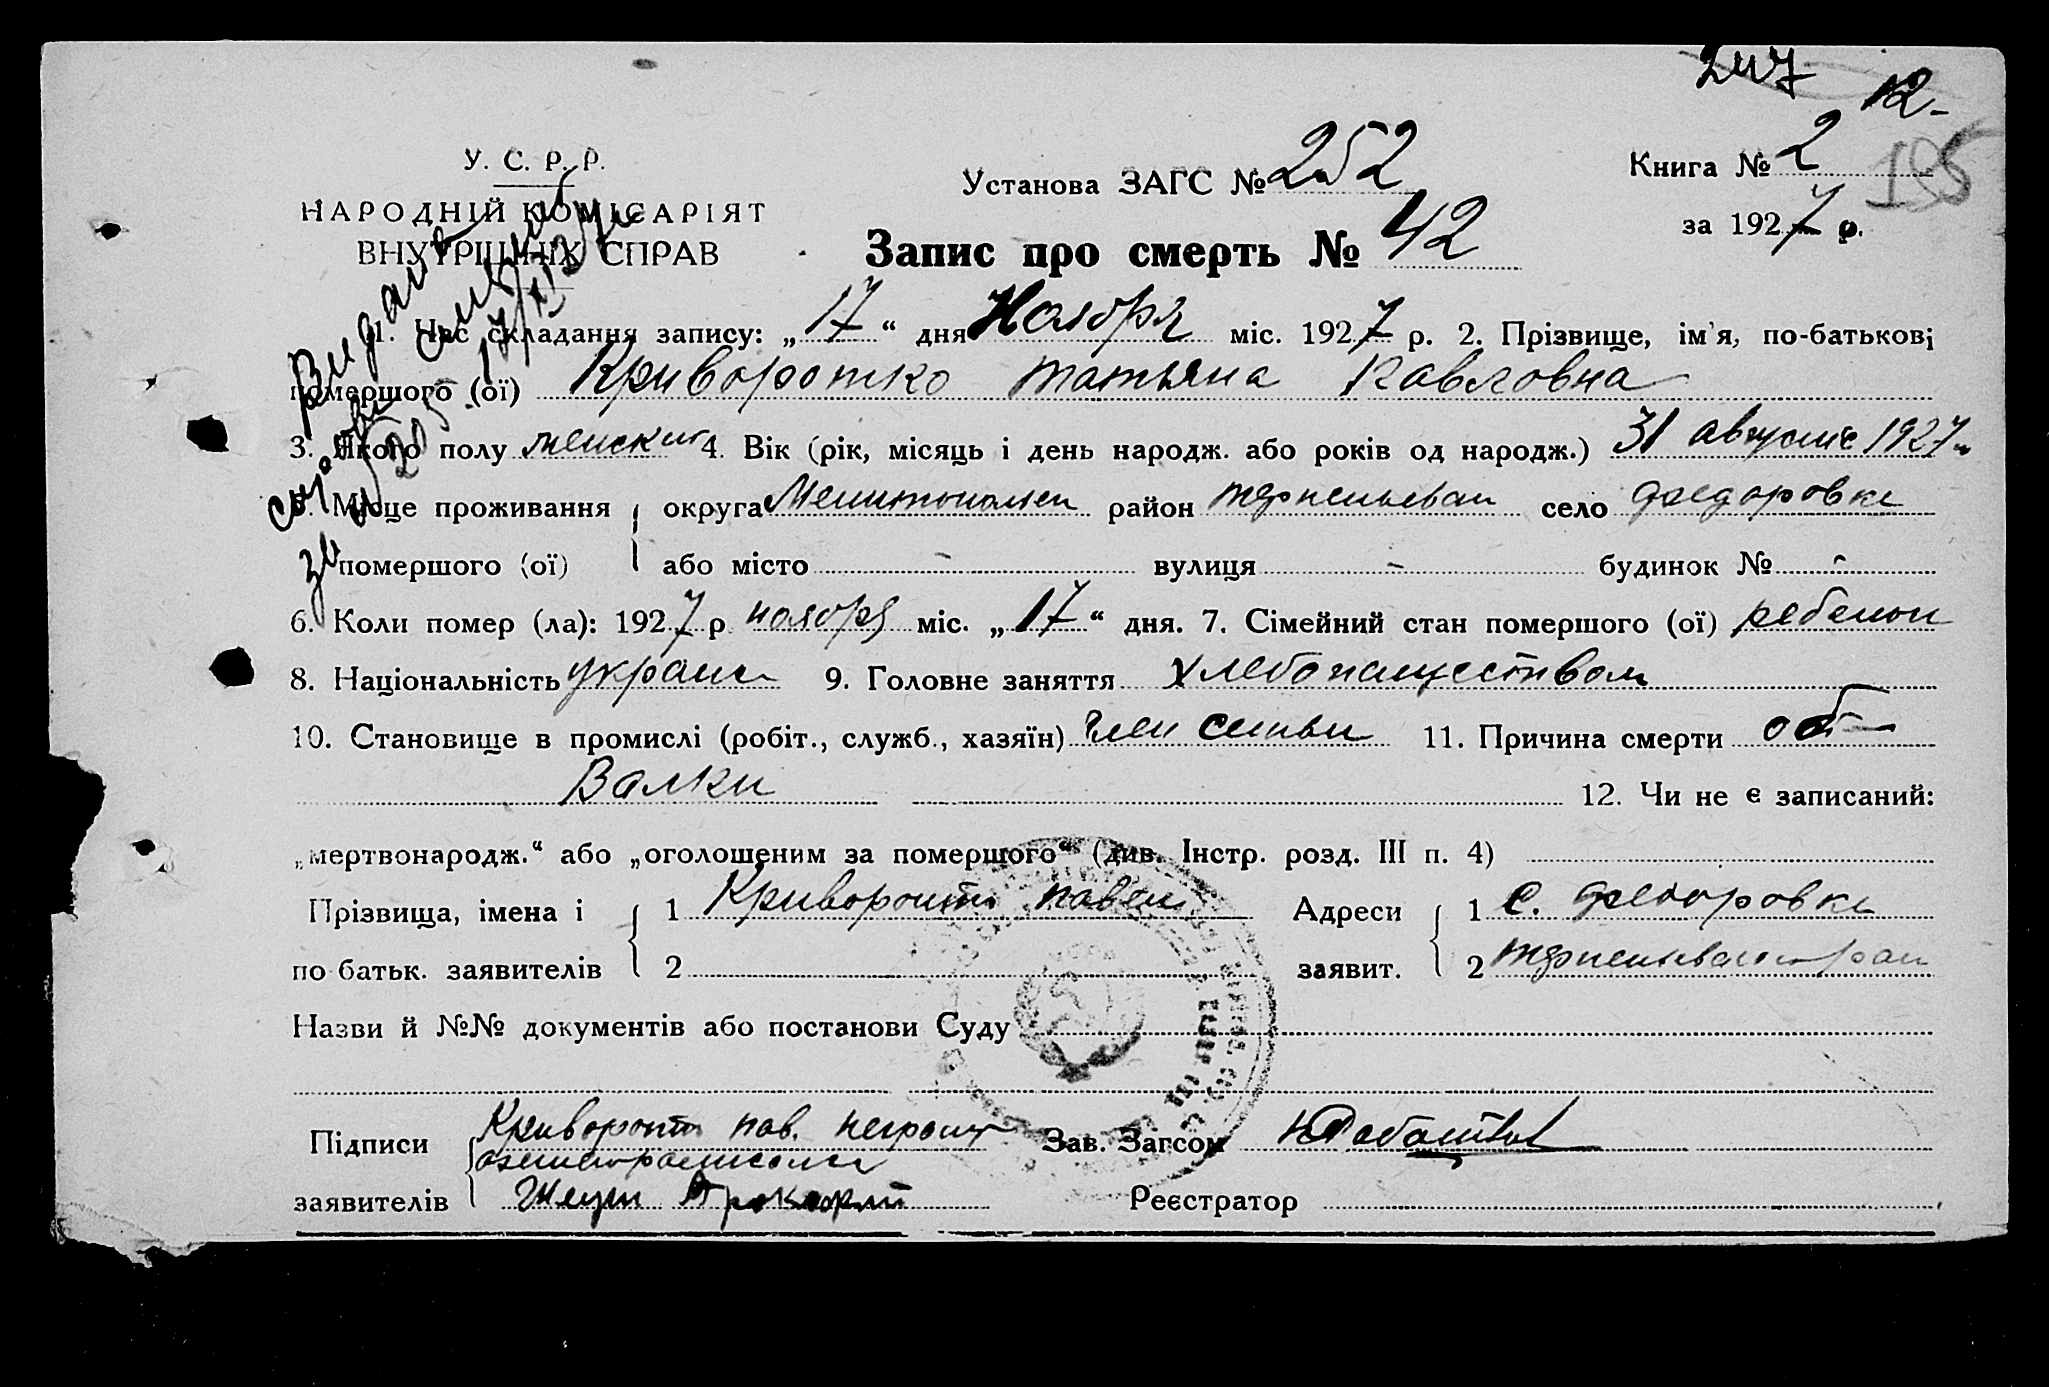 247
12.
У. С. Р. Р.
НАРОДНІЙ КОМІСАРІЯТ
ВНУТРІШНІХ СПРАВ
Установа ЗАГС № 252
Книга № 2
195
за 1927 р.
Запис про смерть № 42
1. Час складання запису: „17“ дня Ноября міс. 1927 р. 2. Прізвище, ім'я, по-батькові
помершого (ої) Криворотко Татьяна Павловна
3. Якого полу женский 4. Вік (рік, місяць і день народж. або років од народж.) 31 августа 1927 г.
5. Місце проживання округа район село Федоровка
помершого (ої) або місто - вулиця - будинок № -
6. Коли помер (ла): 1927 р ноября міс. „17“ дня. 7. Сімейний стан помершого (ої) ребенок
8. Національність украин 9. Головне заняття хлебопашеством
10. Становище в промислі (робіт., служб., хазяїн) член семьи 11. Причина смерти от
12. Чи не є записаний:
„мертвонародж.“ або „оголошеним за помершого“ (див. Інстр. розд. III п. 4)
Прізвища, імена і 1 Криворотко Павел Адреси 1 с. Федоровка
по батьк. заявителів 2 заявит. 2
Назви й №№ документів або постанови Суду
Підписи Криворотко пав. неграмот Зав. Загсом
заявителів Реєстратор
Видана
17/XI 27
за № 205